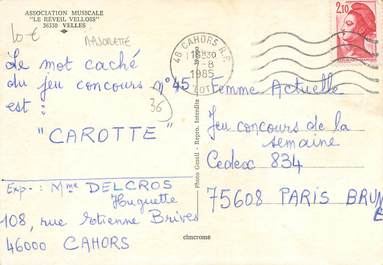 ASSOCIATION MUSICALE
"LE RÉVEIL VELLOIS"
36330 VELLES
10 €
MAJORETTE
Le mot caché
du jeu concours n°45
est :
36
"CAROTTE"
Exp : Mme DELCROS
Huguette
108, rue Etienne Brives
46000 CAHORS
Photo Combi - Repro. Interdite
cimcrome
46 CAHORS R.P.
18H30
-8
1985
LOT
2,10
Femme Actuelle
Jeu concours de la
semaine
Cedex 834
75608 PARIS BRUNE